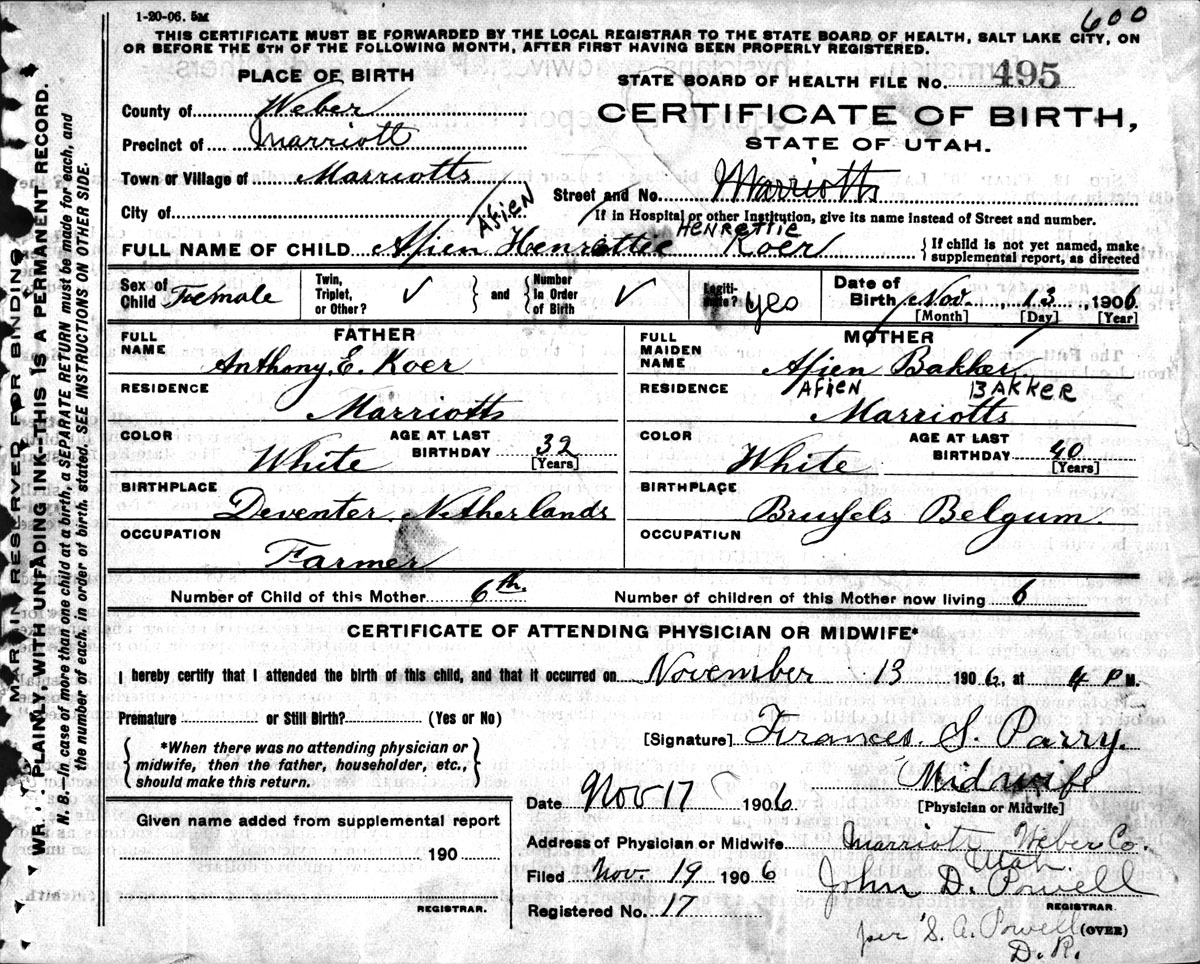 1-20-06. 5M
600
THIS CERTIFICATE MUST BE FORWARDED BY THE LOCAL REGISTRAR TO THE STATE BOARD OF HEALTH, SALT LAKE CITY, ON
OR BEFORE THE 5TH OF THE FOLLOWING MONTH, AFTER FIRST HAVING BEEN PROPERLY REGISTERED.
PLACE OF BIRTH
STATE BOARD OF HEALTH FILE No. 495
County of Weber
CERTIFICATE OF BIRTH,
Precinct of Marriott
STATE OF UTAH.
Town or Village of Marriotts
Street and No. Marriotts
City of
If in Hospital or other Institution, give its name instead of Street and number.
AFIEN HENRETTIE
FULL NAME OF CHILD Afien Henrettie Koer
{ If child is not yet named, make
supplemental report, as directed
Sex of Child Female
Twin, Triplet, or Other? ✓ } and { Number In Order of Birth ✓
Legiti- mate? yes
Date of Birth Nov. 13, 1906
[Month] [Day] [Year]
FATHER
FULL NAME Anthony. E. Koer
RESIDENCE Marriotts
COLOR White AGE AT LAST BIRTHDAY 32 [Years]
BIRTHPLACE Deventer. Netherlands
OCCUPATION Farmer
MOTHER
FULL MAIDEN NAME Afien Bakker.
AFIEN BAKKER
RESIDENCE Marriotts
COLOR White AGE AT LAST BIRTHDAY 40 [Years]
BIRTHPLACE Brussels Belgum.
OCCUPATION
Number of Child of this Mother 6th. Number of children of this Mother now living 6
CERTIFICATE OF ATTENDING PHYSICIAN OR MIDWIFE*
I hereby certify that I attended the birth of this child, and that it occurred on November 13 1906, at 4 P M.
Premature or Still Birth? (Yes or No)
[Signature] Frances. S. Parry.
{ *When there was no attending physician or
midwife, then the father, householder, etc.,
should make this return. }
Midwife
[Physician or Midwife]
Date Nov 17 1906
Given name added from supplemental report
190
REGISTRAR.
Address of Physician or Midwife Marriott Weber Co.
Utah
Filed Nov. 19 1906 John D. Powell
REGISTRAR.
Registered No. 17
per S. A. Powell (OVER)
D. R.
MARGIN RESERVED FOR BINDING
PLAINLY, WITH UNFADING INK—THIS IS A PERMANENT RECORD.
N. B.—In case of more than one child at a birth, a SEPARATE RETURN must be made for each, and
the number of each, in order of birth, stated. SEE INSTRUCTIONS ON OTHER SIDE.